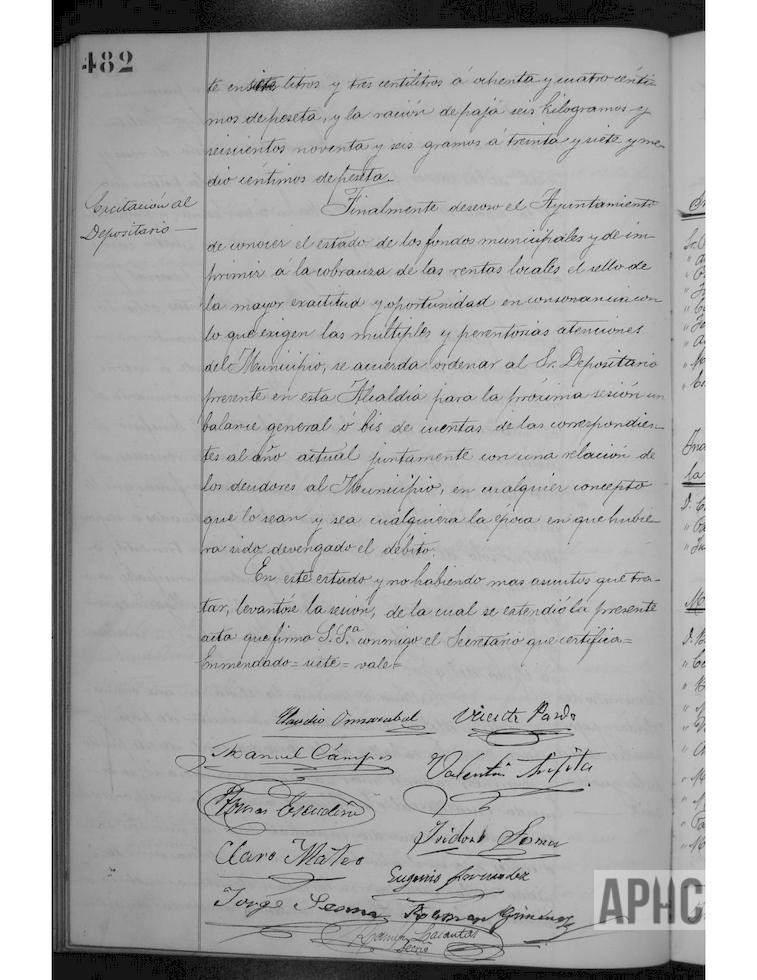 482
te en siete litros y tres centilitros á ochenta y cuatro cénti-
mos de peseta, y la ración de paja seis kilogramos y
seiscientos noventa y seis gramos á treinta y siete y me-
dio céntimos de peseta.
Excitación al
Depositario—
Finalmente deseoso el Ayuntamiento
de conocer el estado de los fondos municipales y de im-
primir á la cobranza de las rentas locales el sello de
la mayor exactitud y oportunidad en consonancia con
lo que exigen las multiples y perentorias atenciones
del Municipio, se acuerda ordenar al Sr. Depositario
presente en esta Alcaldia para la próxima sesión un
balance general ó bis de cuentas de las correspondien-
tes al año actual juntamente con una relación de
los deudores al Municipio, en cualquier concepto
que lo sean y sea cualquiera la época en que hubie-
ra sido devengado el débito.
En este estado y no habiendo mas asuntos que tra-
tar, levantóse la sesión, de la cual se extendió la presente
acta que firma S.Sª conmigo el Secretario que certifica=
Enmendado=siete=vale=
Claudio Vicente Pardo
Manuel Cámpos
Valentin
Tomas Escudero
Isidoro Sesma
Claro Mateo
Eugenio Fernández
Jorge Sesma Roman Gimenez
Secrio
APHC